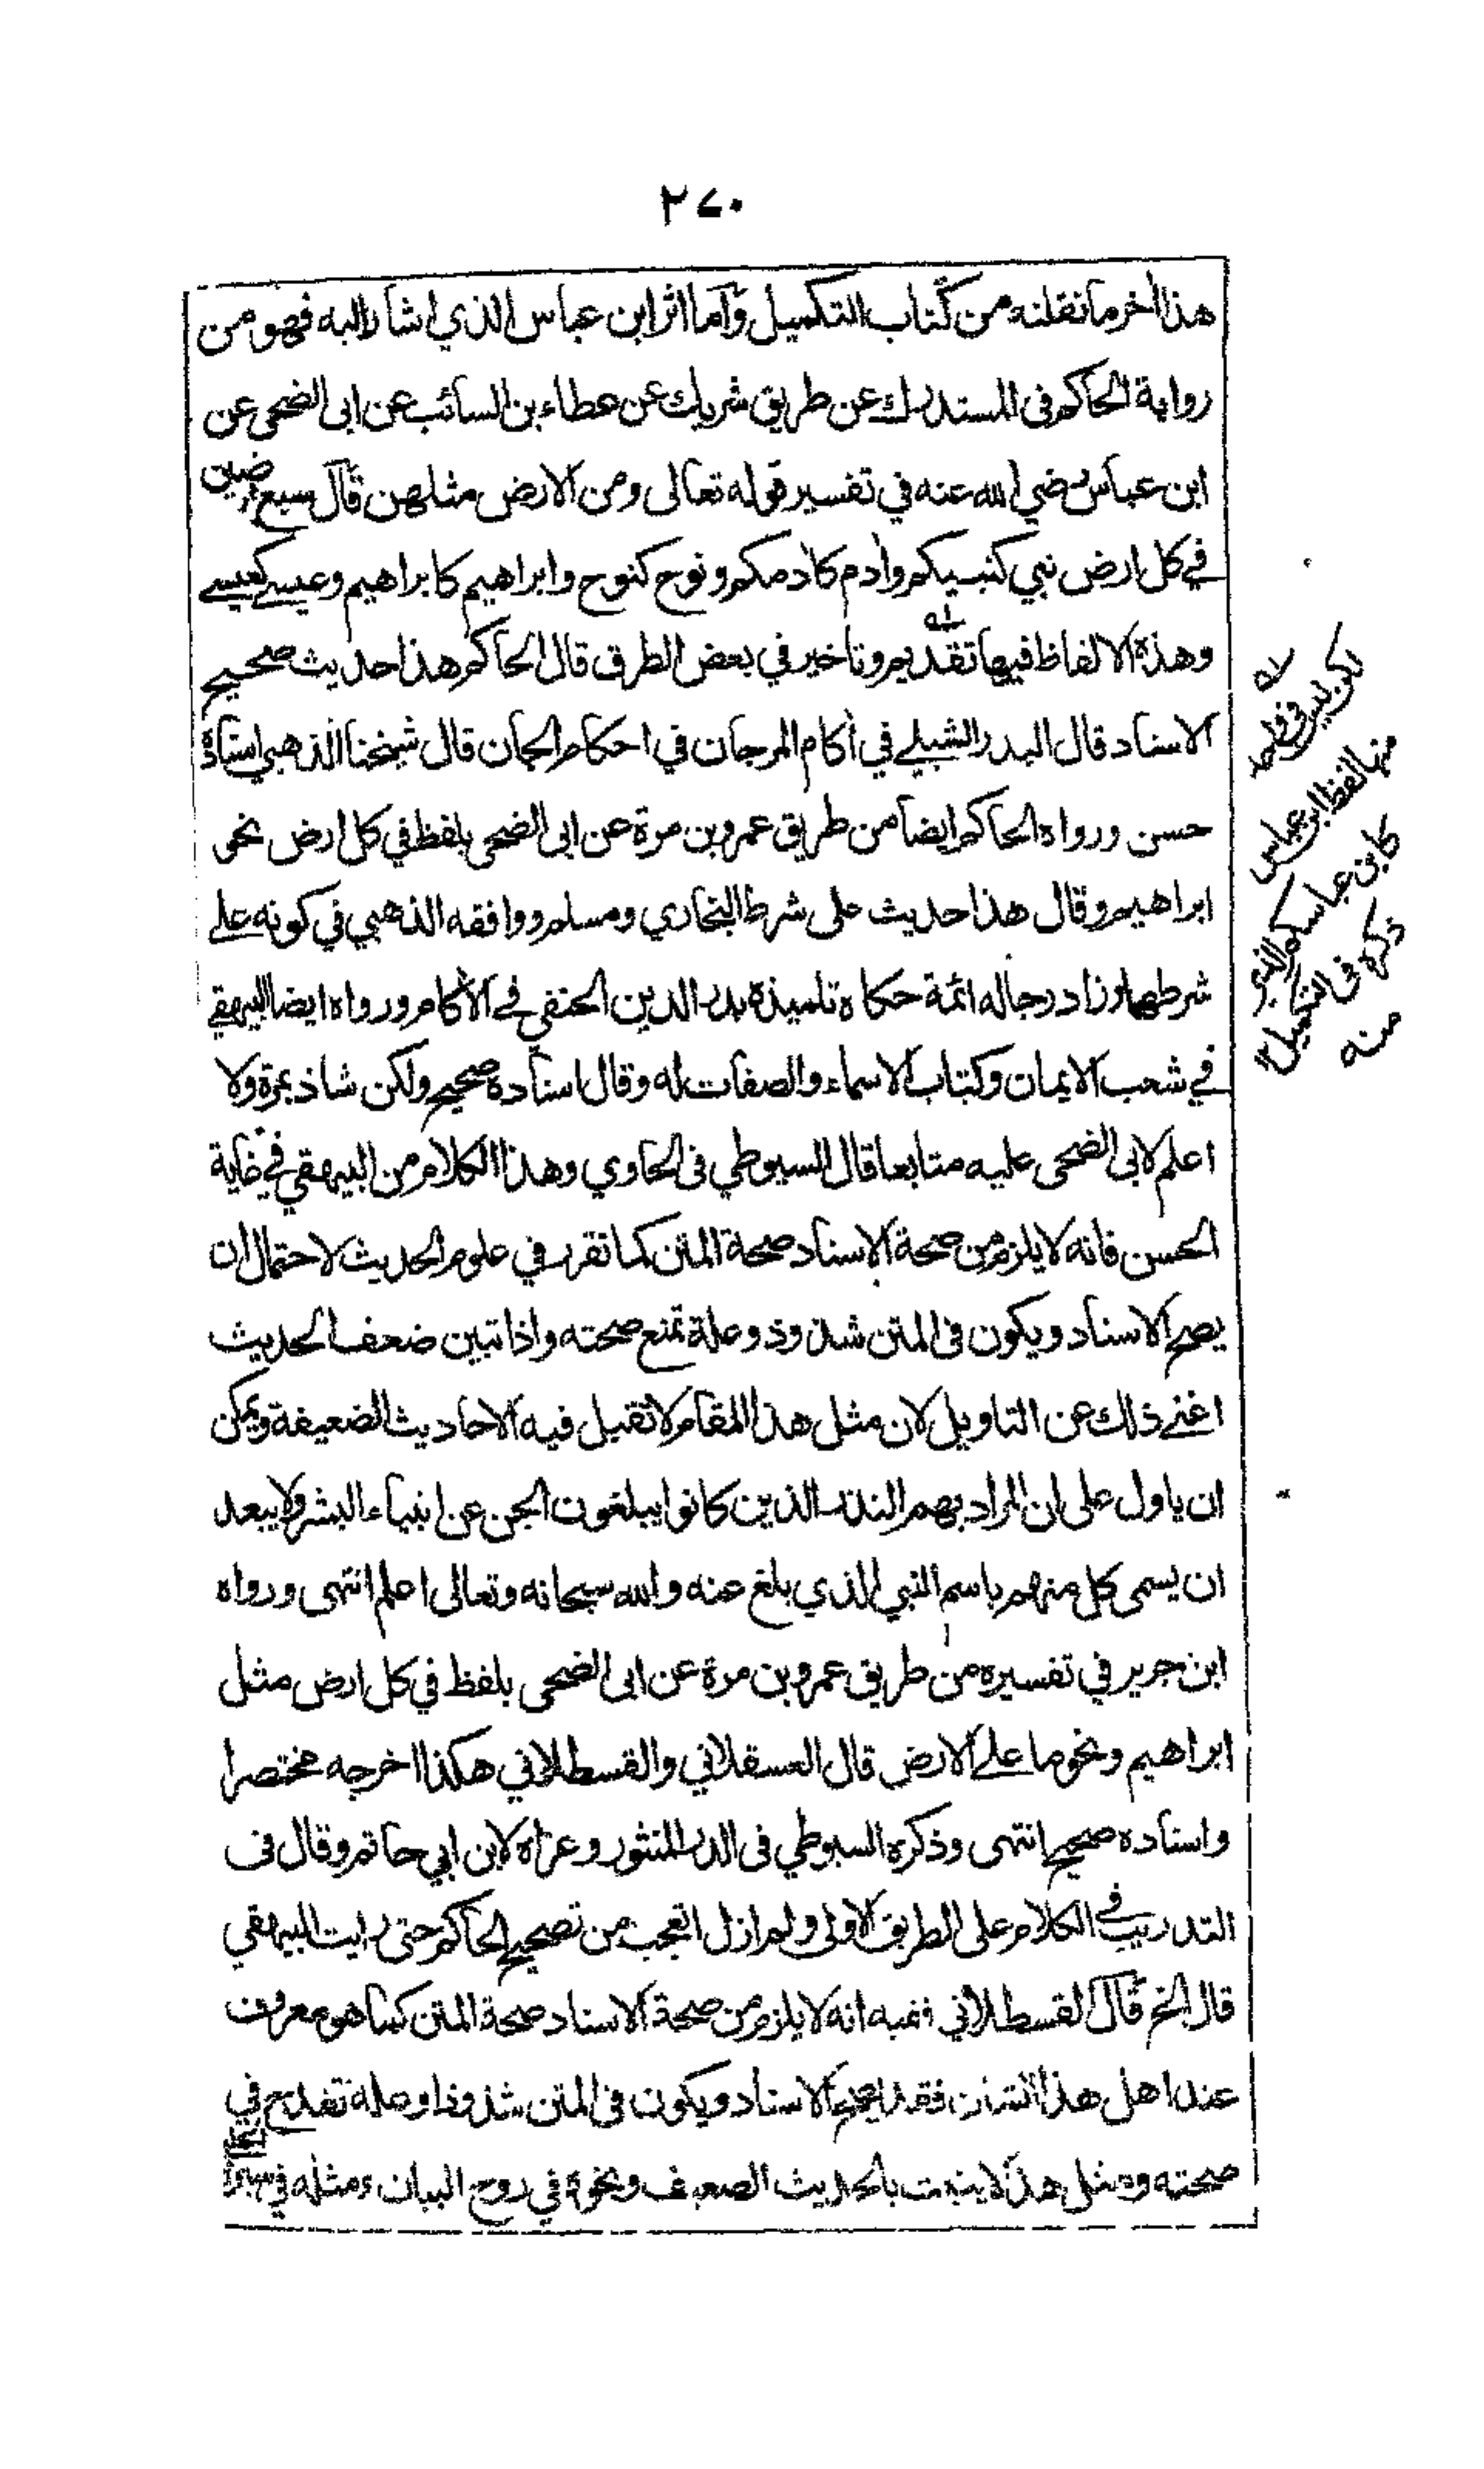 ٢٧٠
هذا اخر ما نقلته من كتاب التكميل وأما اثر ابن عباس الذي اشار اليه فهو من
رواية الحاكم فى المستدرك عن طريق شريك عن عطاء بن السائب عن ابى الضحى عن
ابن عباس رضي الله عنه في تفسير قوله تعالى ومن الارض مثلهن قال سبع ارضين
في كل ارض نبي كنبيكم وادم كادمكم ونوح كنوح وابراهيم كابراهيم وعيسے كعيسے
وهذه الالفاظ فيها تقديم وتاخير في بعض الطرق قال الحاكم هذا حديث صحيح
الاسناد قال البدر الشبلے في أكام المرجان في احكام الجان قال شيخنا الذهبي اسناده
حسن ورواه الحاكم ايضا من طريق عمرو بن مرة عن ابى الضحى بلفظ في كل ارض نحو
ابراهيم وقال هذا حديث على شرط البخاري ومسلم ووافقه الذهبي في كونه علے
شرطهما وزاد رجاله ائمة حكاه تلميذه بدر الدين الحنفي في الأكام ورواه ايضا البيهقے
في شعب الايمان وكتاب الاسماء والصفات له وقال اسناده صحيح ولكن شاذ بمرة ولا
اعلم لابى الضحى عليه متابعا قال السيوطي فى الحاوي وهذا الكلام من البيهقي في غاية
الحسن فانه لا يلزم من صحة الاسناد صحة المتن كما تقرر في علوم الحديث لاحتمال ان
يصح الاسناد ويكون فى المتن شذوذ وعلة تمنع صحته واذا تبين ضعف الحديث
اغنے ذلك عن التاويل لان مثل هذا المقام لا تقبل فيه الاحاديث الضعيفة ويمكن
ان ياول على ان المراد بهم النذر الذين كانوا يبلغون الجن عن انبياء البشر ولا يبعد
ان يسمى كل منهم باسم النبي الذي بلغ عنه والله سبحانه وتعالى اعلم انتهى ورواه
ابن جرير في تفسيره من طريق عمرو بن مرة عن ابى الضحى بلفظ في كل ارض مثل
ابراهيم ونحو ما علے الارض قال العسقلاني والقسطلاني هكذا اخرجه مختصرا
واسناده صحيح انتهى وذكره السيوطي فى الدر المنثور وعزاه لابن ابي حاتم وقال فى
التدريب في الكلام على الطريق الاولى ولم ازل اتعجب من تصحيح الحاكم حتى رايت البيهقي
قال الخ قال القسطلاني ففيه انه لا يلزم من صحة الاسناد صحة المتن كما هو معروف
عند اهل هذا الشان فقد يصح الاسناد ويكون فى المتن شذوذ او علة تقدح في
صحته ومثل هذا لا يثبت بالحديث الضعيف ونحوه في روح البيان ومثله في
لكن ليس فى
منها لفظ ابن عباس
كابن عباسكم
ذكره فى التكميل
منه